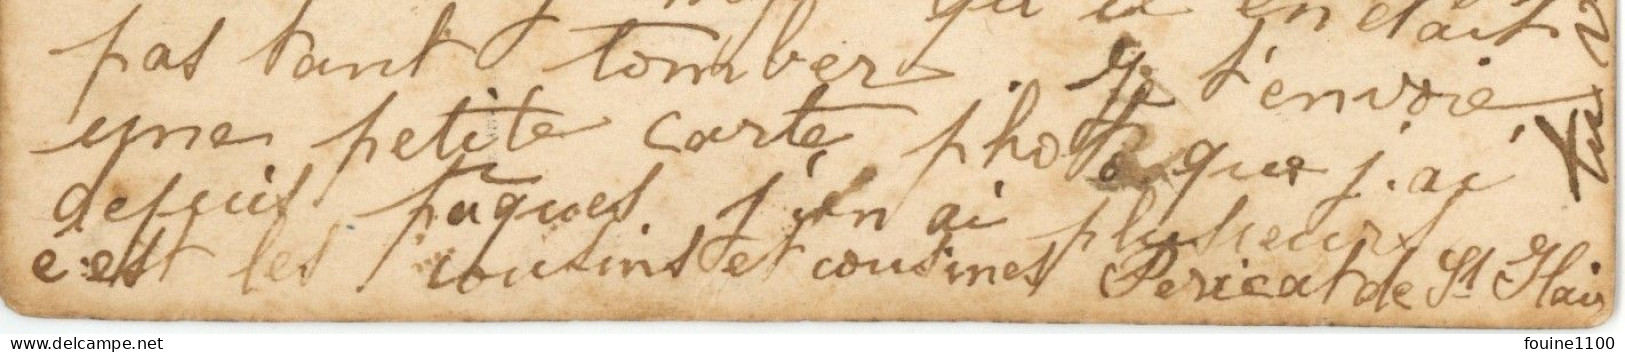 qu'il en était
pas tant tomber. Je t'envoie
une petite carte photo que j'ai
depuis paques j'en ai plusieurs
c'est les cousins et cousines Pericat de St Hair
delcampe.net
fouine1100